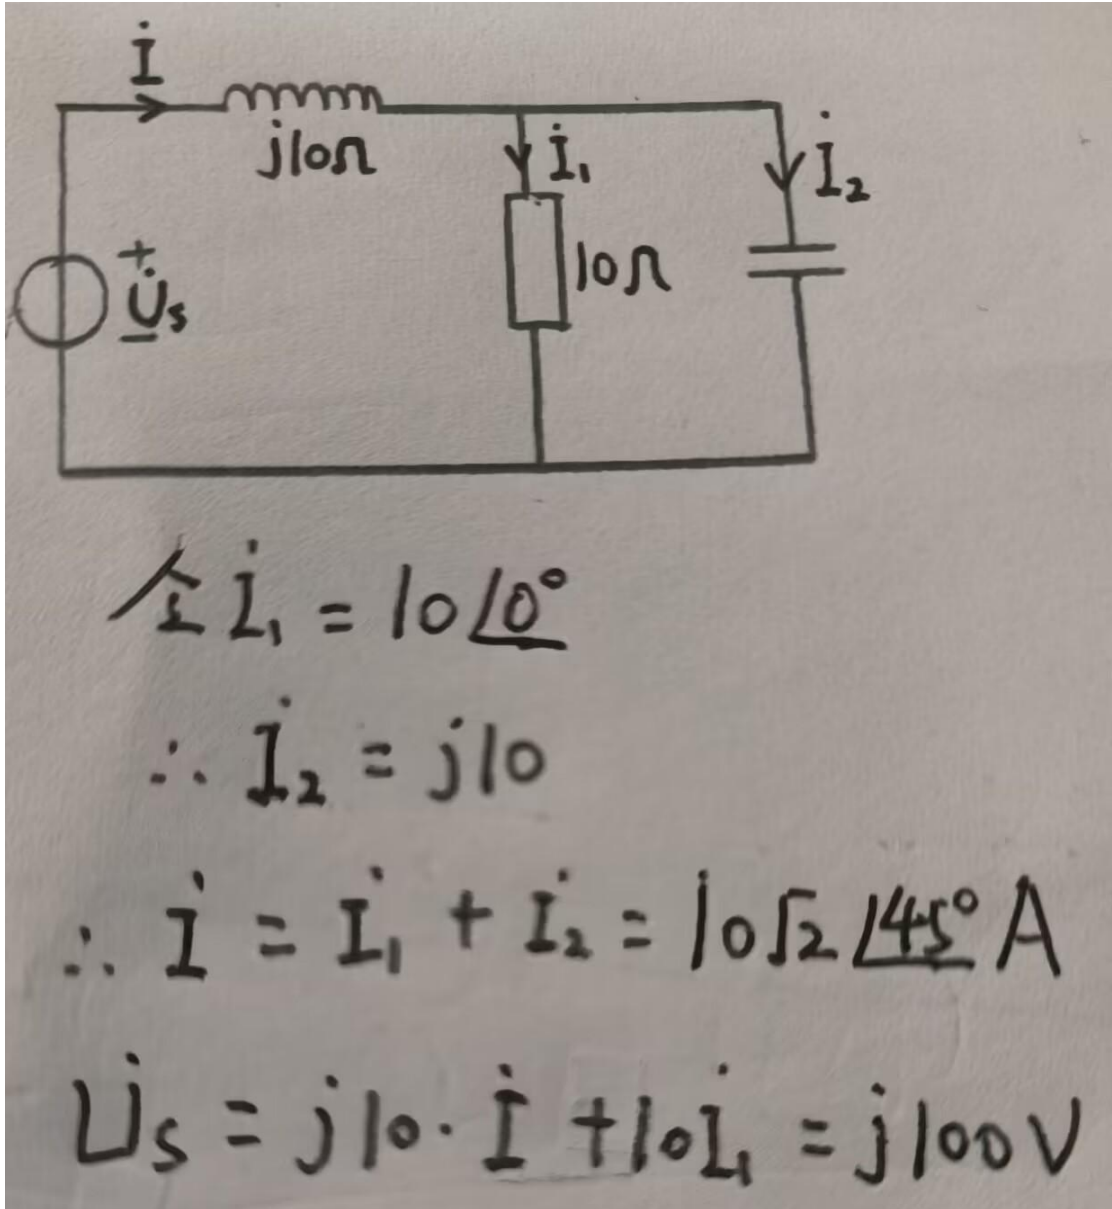 İ
j10Ω
İ₁
İ₂
+
U̇s
−
10Ω
令 İ₁ = 10∠0°
∴ İ₂ = j10
∴ İ = İ₁ + İ₂ = 10√2 ∠45° A
U̇s = j10·İ + 10İ₁ = j100V